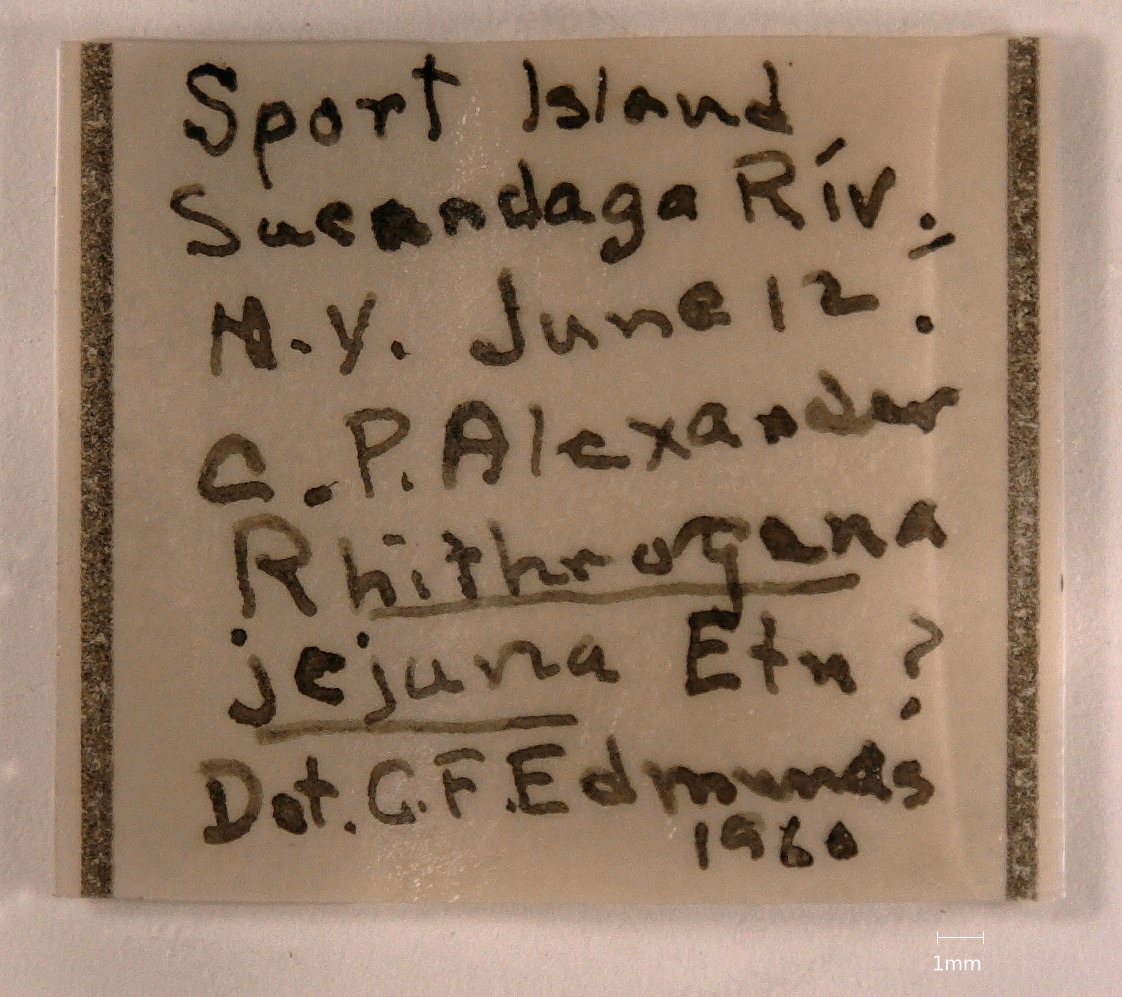 Sport Island
Sucandaga Riv.
N.Y. June 12.
C.P. Alexander
Rhithrogena
jejuna Etn ?
Det. G.F. Edmunds
1960
1mm